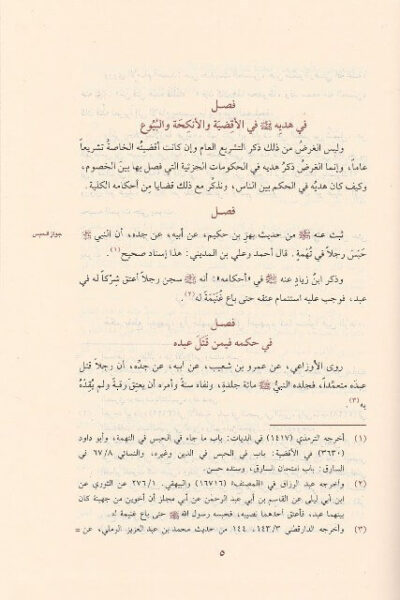 فصل
في هديه ﷺ في الأقضية والأنكحة والبُيُوع
وليس الغرضُ من ذلك ذكر التشريع العام وإن كانت أقضيتُه الخاصةُ تشريعاً
عاماً، وإنما الغرضُ ذكرُ هديه في الحكومات الجزئية التي فصل بها بينَ الخصوم،
وكيف كان هديُه في الحكم بين الناس، ونذكُر مع ذلك قضايا مِن أحكامه الكلية.
فصل
ثبت عنه ﷺ مِن حديث بهزِ بن حكيم، عن أبيه، عن جده، أن النبي ﷺ
جواز الحبس
حَبَسَ رجلاً في تُهَمةٍ. قال أحمد وعلي بن المديني: هذا إسناد صحيح(١).
وذكر ابنُ زياد عنه ﷺ في «أحكامه»: أنه ﷺ سجن رجلاً أعتق شِركاً له في
عبد، فوجب عليه استتمام عتقه حتى باع غُنَيمَةً له(٢).
فصل
في حكمه فيمن قَتَلَ عبده
روى الأوزاعي، عن عمرو بن شعيب، عن أبيه، عن جدِّه، أن رجلاً قتل
عبدَه متعمِّداً، فجلده النبيُّ ﷺ مائة جلدةٍ، ونفاه سنةً وأمره أن يعتق رقبةً ولم يُقِدْهُ
به(٣).
(١) أخرجه الترمذي (١٤١٧) في الديات: باب ما جاء في الحبس في التهمة، وأبو داود
(٣٦٣٠) في الأقضية: باب في الحبس في الدين وغيره، والنسائي ٦٧/٨ في
السارق: باب امتحان السارق، وسنده حسن.
(٢) أخرجه عبد الرزاق في «المصنف» (١٦٧١٦) والبيهقي ٢٧٦/١٠ عن الثوري عن
ابن أبي ليلى عن القاسم بن أبي عبد الرحمن عن أبي مجلز أن أخوين من جهينة كان
بينهما عبد، فأعتق أحدهما نصيبه، فحبسه رسول الله ﷺ حتى باع غنيمة له.
(٣) وأخرجه الدارقطني ١٤٣/٣، ١٤٤ من حديث محمد بن عبد العزيز الرملي، عن =
٥